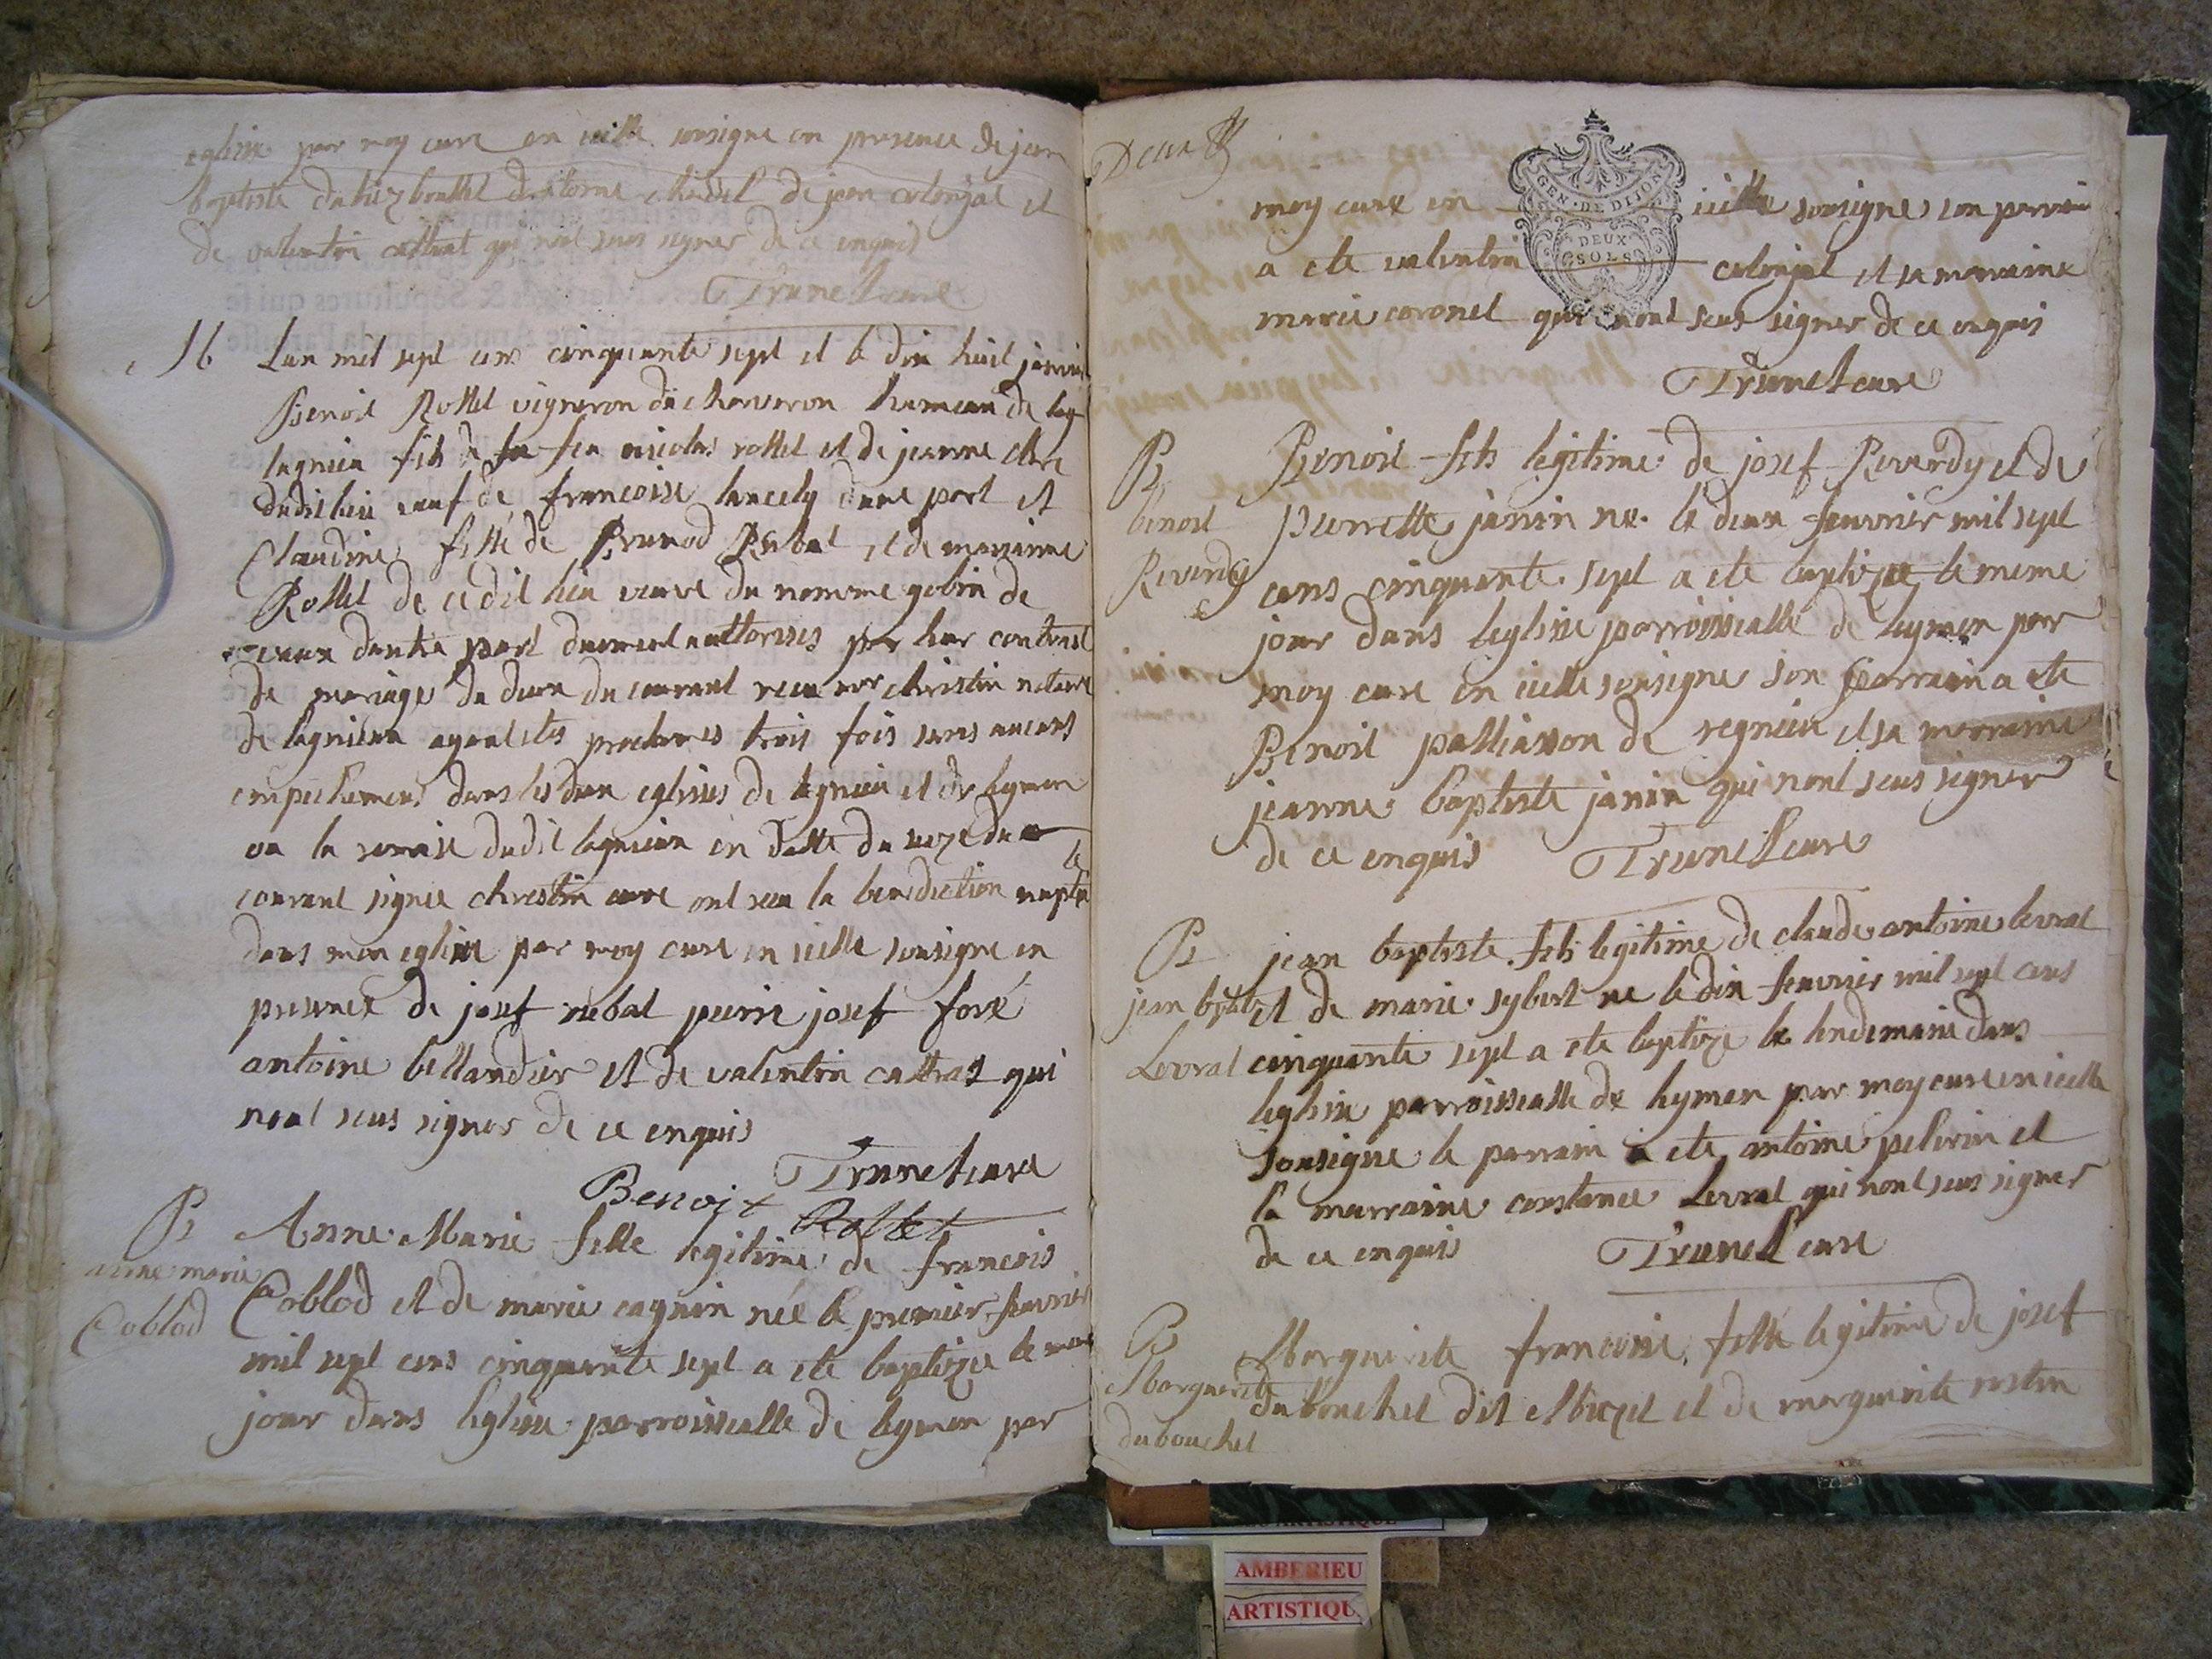 eglise par moy curé en icelle sousigne en presence de jean
baptiste de jean colonjal et
de valentin cattrat qui nont seus signer de ce enquis
Trunel curé
M Lan mil sept cens cinquante sept et le dix huit janvier
Benoit Rollet vigneron de charveron hameau de lag
lagnieu fils de feu nicolas rollet et de jeanne
dudit lieu veuf de francoise lancely dune part et
Claudine fille de Brunod Rebal et de marianne
Rollet de cedit lieu veuve du nomme gobin de
dautre part duement authorises par leur contrat
de mariage du deux du courant receu mr christin notaire
de lagnieux ayant etes proclames trois fois sans aucuns
empechemens dans les deux eglises de lagnieu et de leymen
vu la remise dudit lagnieux en datte du du
courant signée chrestin curé ont receu la benediction nuptia le
dans mon eglise par moy curé en icelle sousigne en
presence de josef rebal pierre josef foré
antoine bellandier et de valentin cattrat qui
nont seus signer de ce enquis
Trunel curé
Benoit Rollet
B Anne Marie fille legitime de francois
anne marie Coblod et de marie cagnin née le premier feuvrier
Coblod mil sept cens cinquante sept a ete baptizée le meme
jour dans leglise parroissealle de leymen par
Deux
GEN. DE DIJON
DEUX
SOLS
moy curé en icelle sousigne son parrain
a ete valentin colonjal et sa marraine
marie coronel qui nont seus signer de ce enquis
Trunel curé
B Benoit fils legitime de josef Reverdy et de
benoit pierrette janin né le deux feuvrier mil sept
Reverdy cens cinquante sept a ete baptizee le meme
jour dans leglise parroissealle de leymen par
moy curé en icelle sousigne son parrain a ete
Benoit palliasson de regnieu et sa marraine
jeanne baptiste janin qui nont seus signer
de ce enquis Trunel curé
B jean baptiste fils legitime de claude antoine levrat
jean bptte et de marie sybert né le dix feuvrier mil sept cens
Levrat cinquante sept a ete baptize le lendemain dans
leglise parroissealle de leymen par moy curé en icelle
sousigne le parrain a ete antoine pelerin et
la marraine constance Levrat qui nont seus signer
de ce enquis Trunel curé
B Marguerite francoise fille legitime de josef
Marguerite dubouchet dit et de marguerite
dubouchet
AMBERIEU
ARTISTIQU